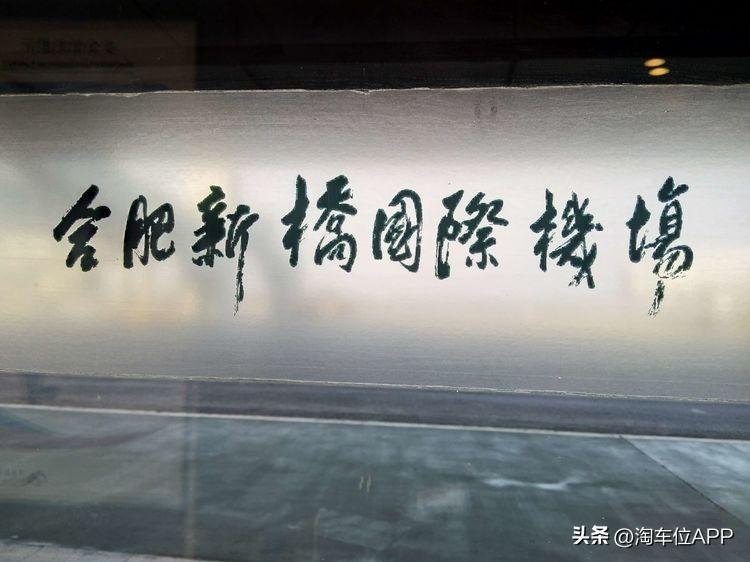 合肥新橋國際機場
头条 @淘车位APP